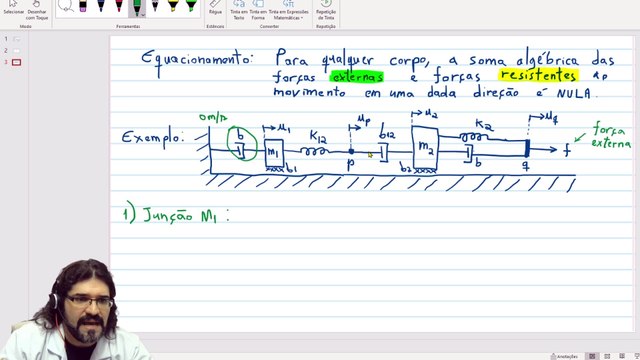 Desenhar com Toque
Borracha
Ferramentas
Régua
Estêncis
Tinta em Texto
Tinta em Forma
Tinta em Expressões Matemáticas
Converter
Repetição de Tinta
Repetição
1
2
3
Equacionamento: Para qualquer corpo, a soma algébrica das
forças externas e forças resistentes ao
movimento em uma dada direção é NULA.
Exemplo:
0 m/s
b
u1
M1
b1
K12
up
p
b12
u2
M2
b2
K2
b
uq
q
f
força
externa
1) Junção M1 :
Anotações